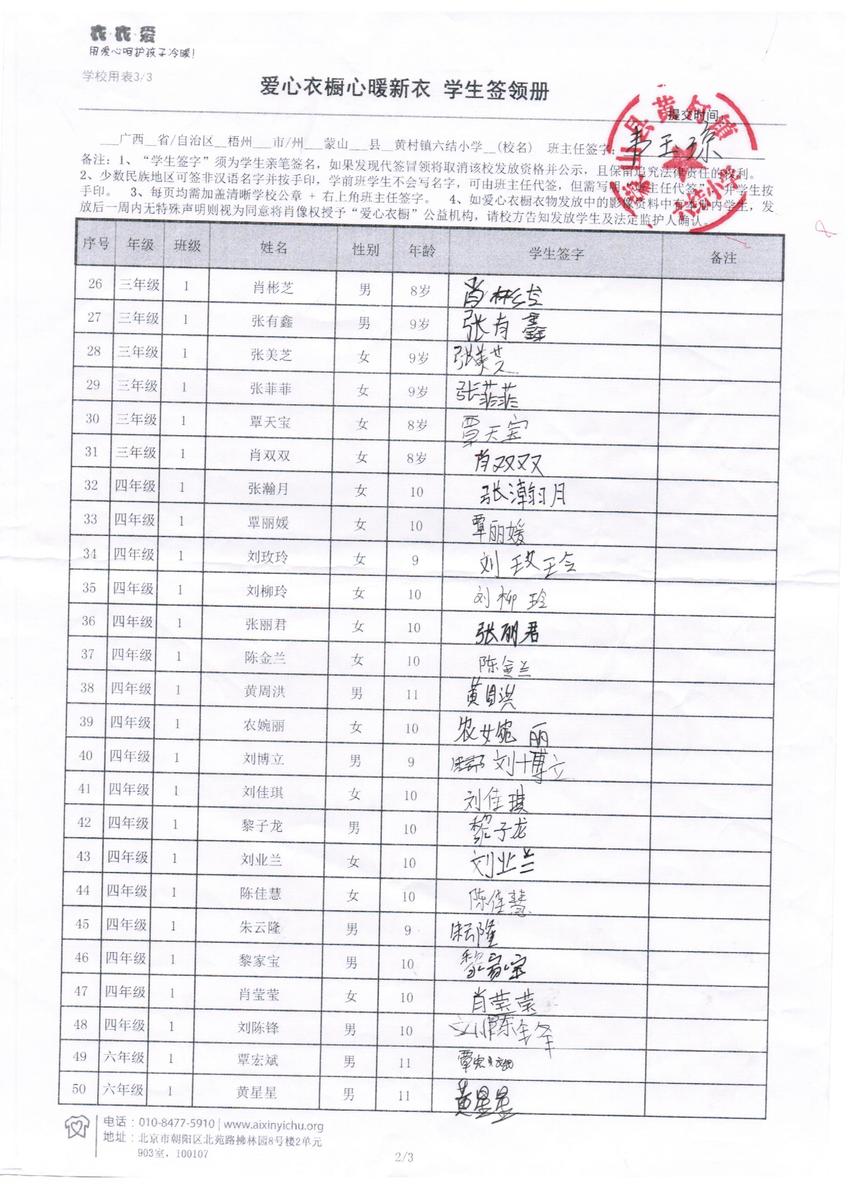 衣·衣·爱
用爱心呵护孩子冷暖!
学校用表3/3
爱心衣橱心暖新衣 学生签领册
提交时间
___广西__省/自治区__梧州___市/州___蒙山___县__黄村镇六结小学__(校名) 班主任签字:
备注:1、“学生签字”须为学生亲笔签名,如果发现代签冒领将取消该校发放资格并公示,且保留追究法律责任的权利。
2、少数民族地区可签非汉语名字并按手印,学前班学生不会写名字,可由班主任代签,但需写明“班主任代签”,并学生按
手印。 3、每页均需加盖清晰学校公章 + 右上角班主任签字。 4、如爱心衣橱衣物发放中的影像资料中有受助学生,发
放后一周内无特殊声明则视为同意将肖像权授予“爱心衣橱”公益机构,请校方告知发放学生及法定监护人确认。
序号 年级 班级 姓名 性别 年龄 学生签字 备注
26 三年级 1 肖彬芝 男 8岁 肖彬芝
27 三年级 1 张有鑫 男 9岁 张有鑫
28 三年级 1 张美芝 女 9岁 张美芝
29 三年级 1 张菲菲 女 9岁 张菲菲
30 三年级 1 覃天宝 女 8岁 覃天宝
31 三年级 1 肖双双 女 8岁 肖双双
32 四年级 1 张瀚月 女 10 张瀚月
33 四年级 1 覃丽媛 女 10 覃丽媛
34 四年级 1 刘玫玲 女 9 刘玫玲
35 四年级 1 刘柳玲 女 10 刘柳玲
36 四年级 1 张丽君 女 10 张丽君
37 四年级 1 陈金兰 女 10 陈金兰
38 四年级 1 黄周洪 男 11 黄周洪
39 四年级 1 农婉丽 女 10 农婉丽
40 四年级 1 刘博立 男 9 刘博立
41 四年级 1 刘佳琪 女 10 刘佳琪
42 四年级 1 黎子龙 男 10 黎子龙
43 四年级 1 刘业兰 女 10 刘业兰
44 四年级 1 陈佳慧 女 10 陈佳慧
45 四年级 1 朱云隆 男 9 朱云隆
46 四年级 1 黎家宝 男 10 黎家宝
47 四年级 1 肖莹莹 女 10 肖莹莹
48 四年级 1 刘陈锋 男 10 刘陈锋
49 六年级 1 覃宏斌 男 11 覃宏斌
50 六年级 1 黄星星 男 11 黄星星
电话:010-8477-5910 | www.aixinyichu.org
地址:北京市朝阳区北苑路拂林园8号楼2单元
903室,100107
2/3